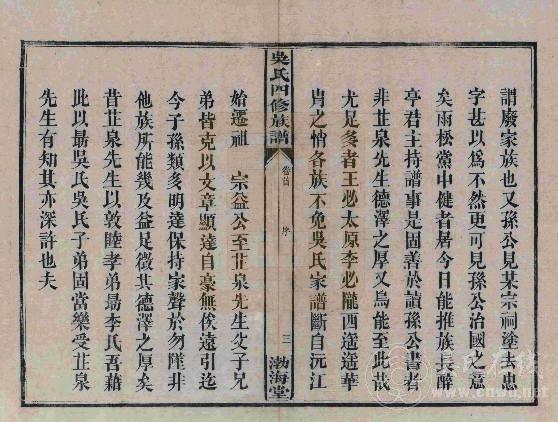 謂廢家族也又孫公見某宗祠塗去忠
字甚以爲不然更可見孫公治國之意
矣雨松黨中健者居今日能推族長醉
亭君主持譜事是固善於讀孫公書者
非芷泉先生德澤之厚又烏能至此哉
尤足多者王必太原李必隴西遥遥華
胄之悄各族不免吳氏家譜斷自沅江
吳氏四修族譜
卷首 序
三
渤海堂
始遷祖 宗益公至芷泉先生父子兄
弟皆克以文章顯達自豪無俟遠引迄
今子孫類多明達保持家聲於勿墜非
他族所能幾及益足徵其德澤之厚矣
昔芷泉先生以敦睦孝弟勗李氏吾藉
此以勗吳氏吳氏子弟固當樂受芷泉
先生有知其亦深許也夫